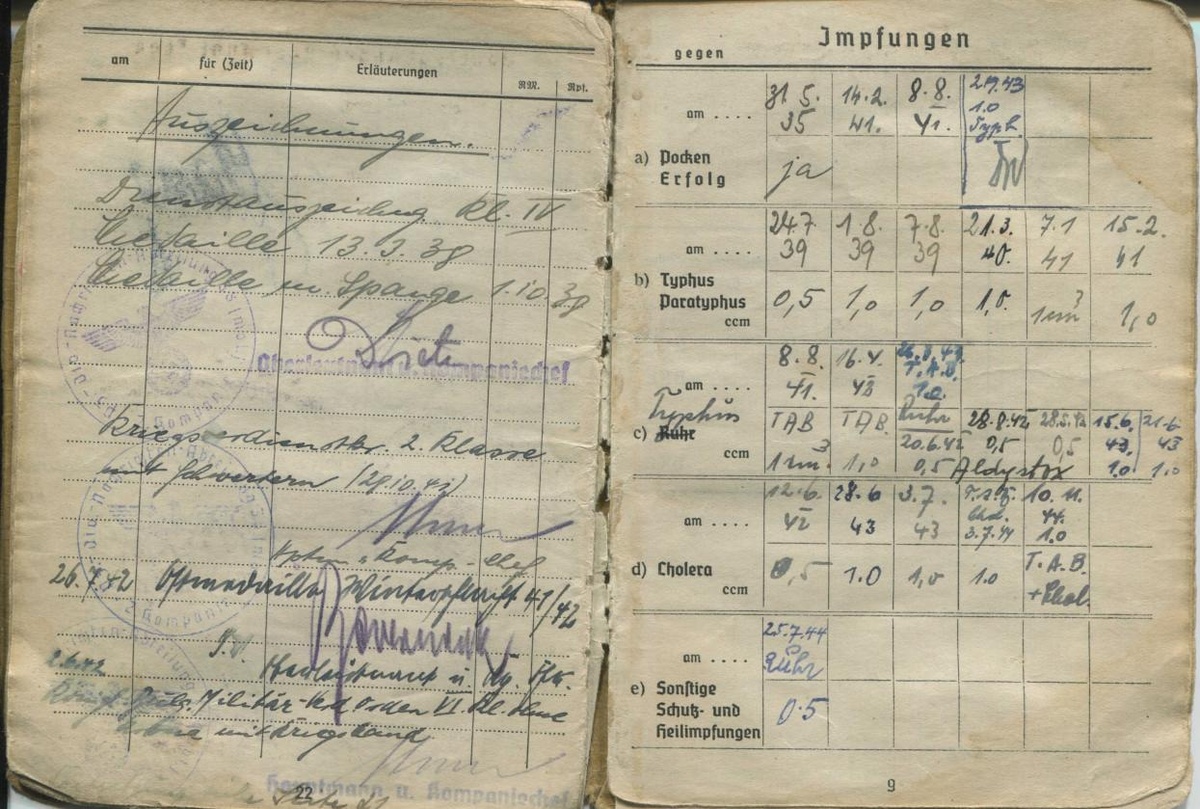 am für (Zeit) Erläuterungen RM. Rpf.
Auszeichnungen.
Dienstauszeichng. Kl. IV
Medaille 13.3.38
Medaille m. Spange 1.10.38
Oberleutnant u. Kompaniechef
Kriegsverdienstkr. 2. Klasse
mit Schwertern
Hptm u. Komp.-Chef
26.7.42 Ostmedaille Winterschlacht 41/42
2.6.42
Militär- Orden VI. Kl. ohne
mit Kriegsband
Hauptmann u. Kompaniechef
22
Impfungen
gegen
am .... 31.5. 35 14.2. 41. 8.8. 41. 1.0 Typh.
a) Pocken
Erfolg ja
am .... 24.7 39 1.8. 39 7.8. 39 21.3. 40. 7.1 41 15.2. 41
b) Typhus
Paratyphus
ccm 0,5 1,0 1,0 1,0. 1 cm³ 1,0
am .... 8.8. 41. 16.4. 43 T.A.B. 1.0
Typhus TAB TAB. Ruhr 28.8.42 28.5.42 15.6. 43. 21.6 43
c) Ruhr 20.6.42 0,5 0,5
ccm 1 cm.³ 1,0 0,5 1.0 1.0
am .... 12.6. 42 28.6 43 3.7. 43 3.7.44 10.11. 44. 1.0
d) Cholera
ccm 0,5 1.0 1,0 1.0 T.A.B. + Chol.
am .... 25.7.44 Ruhr
e) Sonstige
Schutz- und
Heilimpfungen 0.5
9